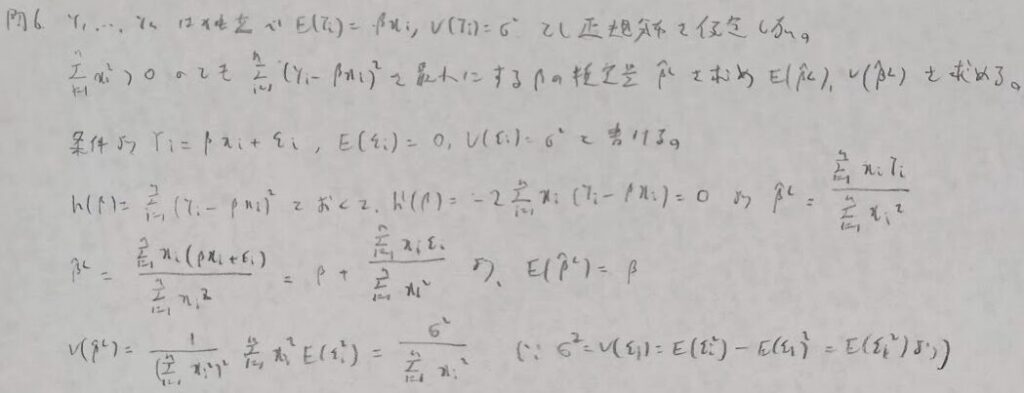 問6. Y₁, …, Yₙ は独立で E(Yᵢ) = βxᵢ, V(Yᵢ) = σ² とし正規分布を仮定しない。
Σᵢ₌₁ⁿ xᵢ² > 0 のとき Σᵢ₌₁ⁿ (Yᵢ - βxᵢ)² を最小にする β の推定量 β̂ᴸ を求め E(β̂ᴸ), V(β̂ᴸ) を求める。
条件より Yᵢ = βxᵢ + εᵢ, E(εᵢ) = 0, V(εᵢ) = σ² と書ける。
h(β) = Σᵢ₌₁ⁿ (Yᵢ - βxᵢ)² とおくと、h'(β) = -2 Σᵢ₌₁ⁿ xᵢ (Yᵢ - βxᵢ) = 0 より β̂ᴸ = Σᵢ₌₁ⁿ xᵢYᵢ / Σᵢ₌₁ⁿ xᵢ²
β̂ᴸ = Σᵢ₌₁ⁿ xᵢ(βxᵢ + εᵢ) / Σᵢ₌₁ⁿ xᵢ² = β + Σᵢ₌₁ⁿ xᵢεᵢ / Σᵢ₌₁ⁿ xᵢ² より、E(β̂ᴸ) = β
V(β̂ᴸ) = 1 / (Σᵢ₌₁ⁿ xᵢ²)² Σᵢ₌₁ⁿ xᵢ² E(εᵢ²) = σ² / Σᵢ₌₁ⁿ xᵢ² (∵ σ² = V(εᵢ) = E(εᵢ²) - E(εᵢ)² = E(εᵢ²) より)